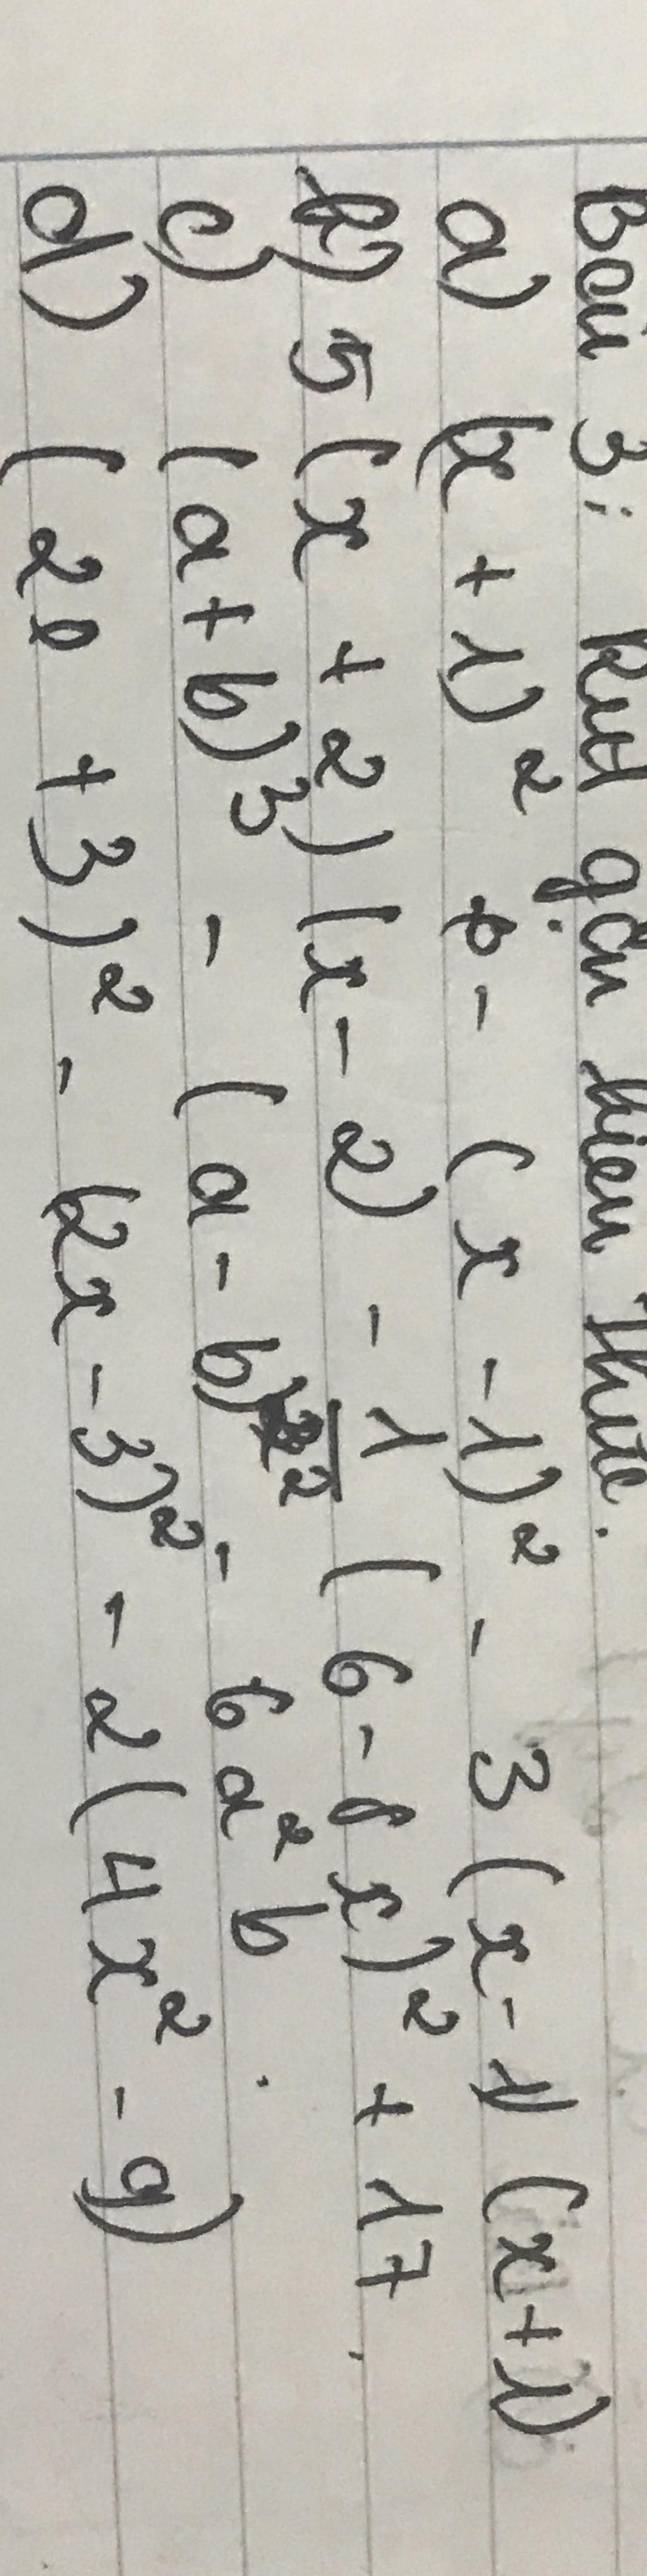 Bài 3: Rút gọn biểu thức.
a) (x + 1)² - (x - 1)² - 3(x - 1)(x + 1)
b) 5(x + 2)(x - 2) - 1/2 (6 - 8x)² + 17
c) (a + b)³ - (a - b)² - 6a²b
d) (2 + 3)² - (2x - 3)² - 2(4x² - 9)